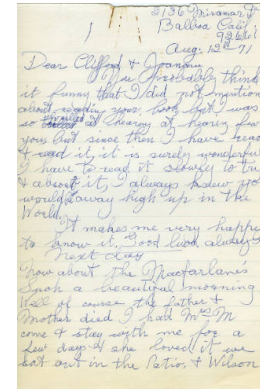 2136 Miramar Dr
Balboa Calif
92661
Aug. 12th 71
Dear Clifford &
You Probably think
it funny that I did not mention
about reading your book but I was
so at hearing from
you but since then I have read
& read it, it is surely wonderful
I have to read it slowly to
& absorb it, I always knew you
would away high up in the
World.
It makes me very happy
to know it. Good luck always
Next day
Now about the Macfarlanes
Such a beautiful morning
Well of course the Father &
Mother died I had Mrs M
come & stay with me for a
few days & she loved it we
sat out in the Patio & Wilson